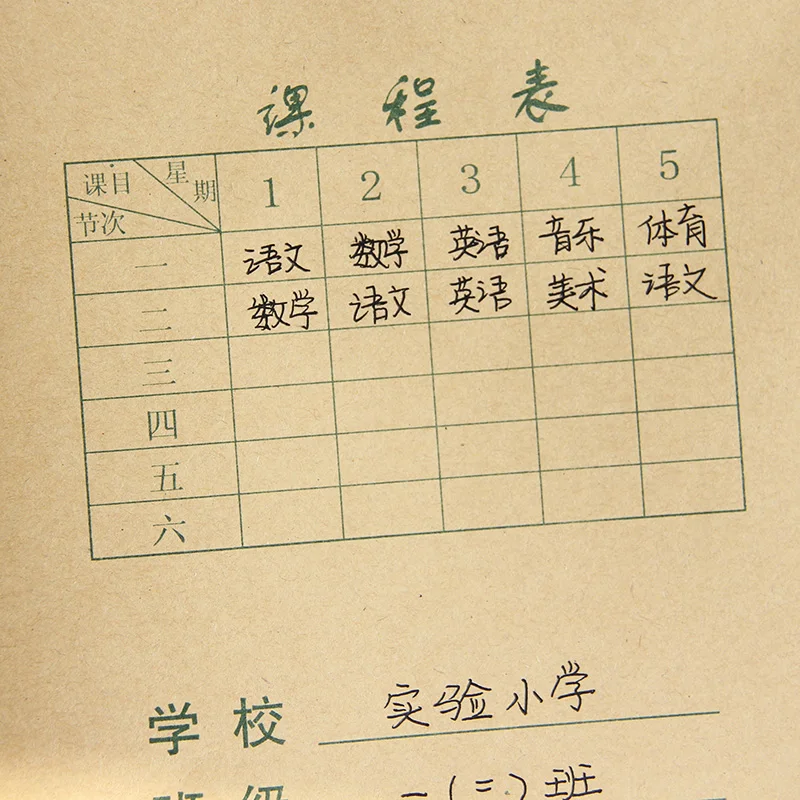 课程表
课目 星期 节次 1 2 3 4 5
一 语文 数学 英语 音乐 体育
二 数学 语文 英语 美术 语文
三
四
五
六
学校 实验小学
班级 一(二)班